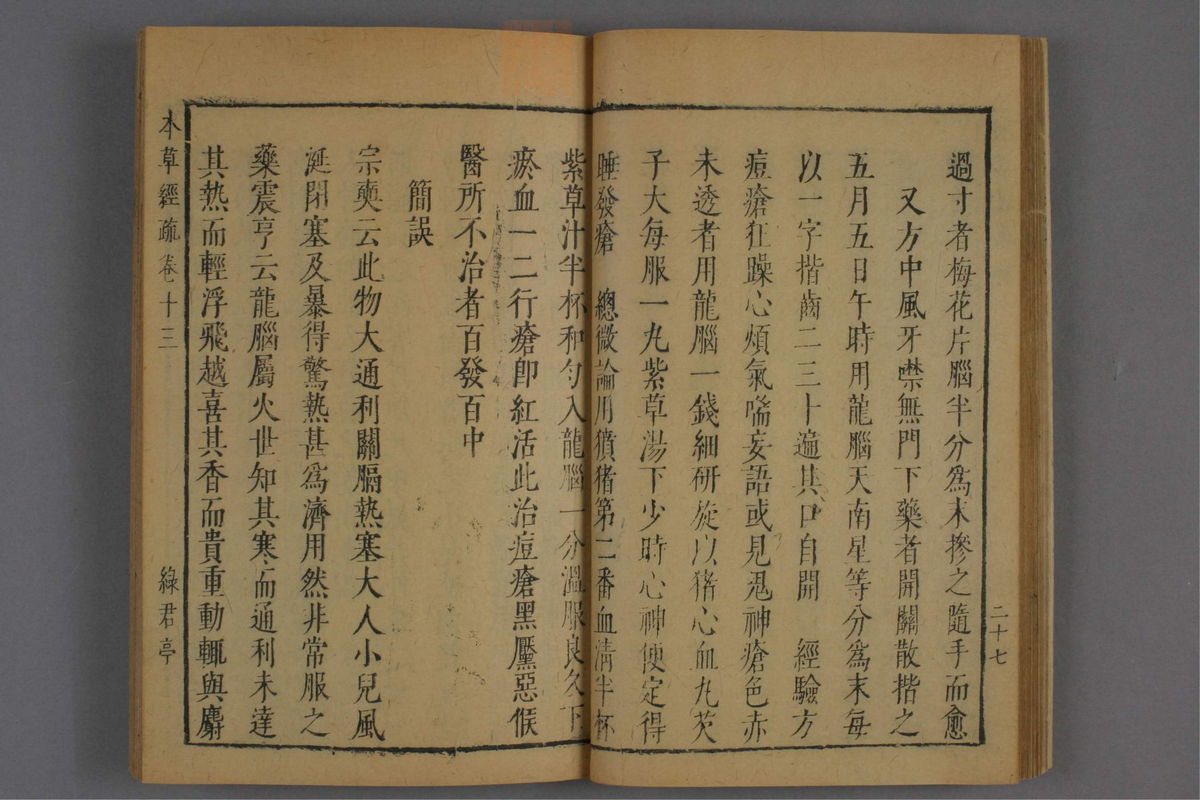 過寸者梅花片腦半分爲末摻之隨手而愈
又方中風牙噤無門下藥者開關散揩之
五月五日午時用龍腦天南星等分爲末每
以一字揩齒二三十遍其口自開　經驗方
痘瘡狂躁心煩氣喘妄語或見鬼神瘡色赤
未透者用龍腦一錢細研旋以猪心血丸芡
子大每服一丸紫草湯下少時心神便定得
睡發瘡　總微論用獖猪第二番血淸半杯
二十七
紫草汁半杯和勻入龍腦一分溫服良久下
瘀血一二行瘡卽紅活此治痘瘡黑黶惡候
醫所不治者百發百中
簡誤
宗奭云此物大通利關膈熱塞大人小兒風
涎閉塞及暴得驚熱甚爲濟用然非常服之
藥震亨云龍腦屬火世知其寒而通利未達
其熱而輕浮飛越喜其香而貴重動輒與麝
本草經疏　卷十三　綠君亭